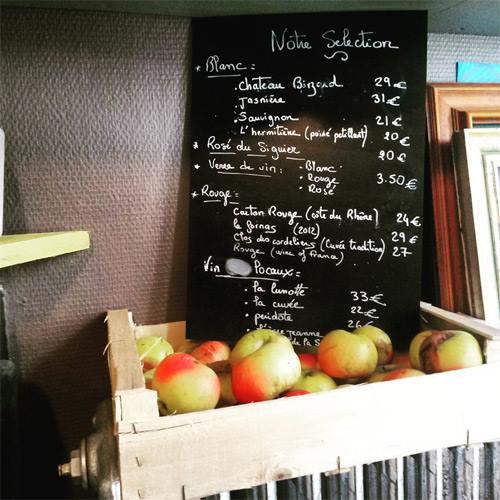 Nôtre Selection
* Blanc :
. chateau 29 €
. Jasnière 31 €
. Sauvignon 21 €
. L'hermitière (poiré petillant) 20 €
* Rosé du Siguier 20 €
* Verre de vin : . Blanc
. Rouge 3.50 €
. Rosé
* Rouge :
Caïtan Rouge (côte du Rhône) 24 €
le (2012) 29 €
Clos des cordeliers (Cuvée tradition) 27
Rouge (wine of france)
Vin Locaux :
. la lunotte 33 €
. la cuvée 22 €
. peridote 26 €
jeanne
de la S